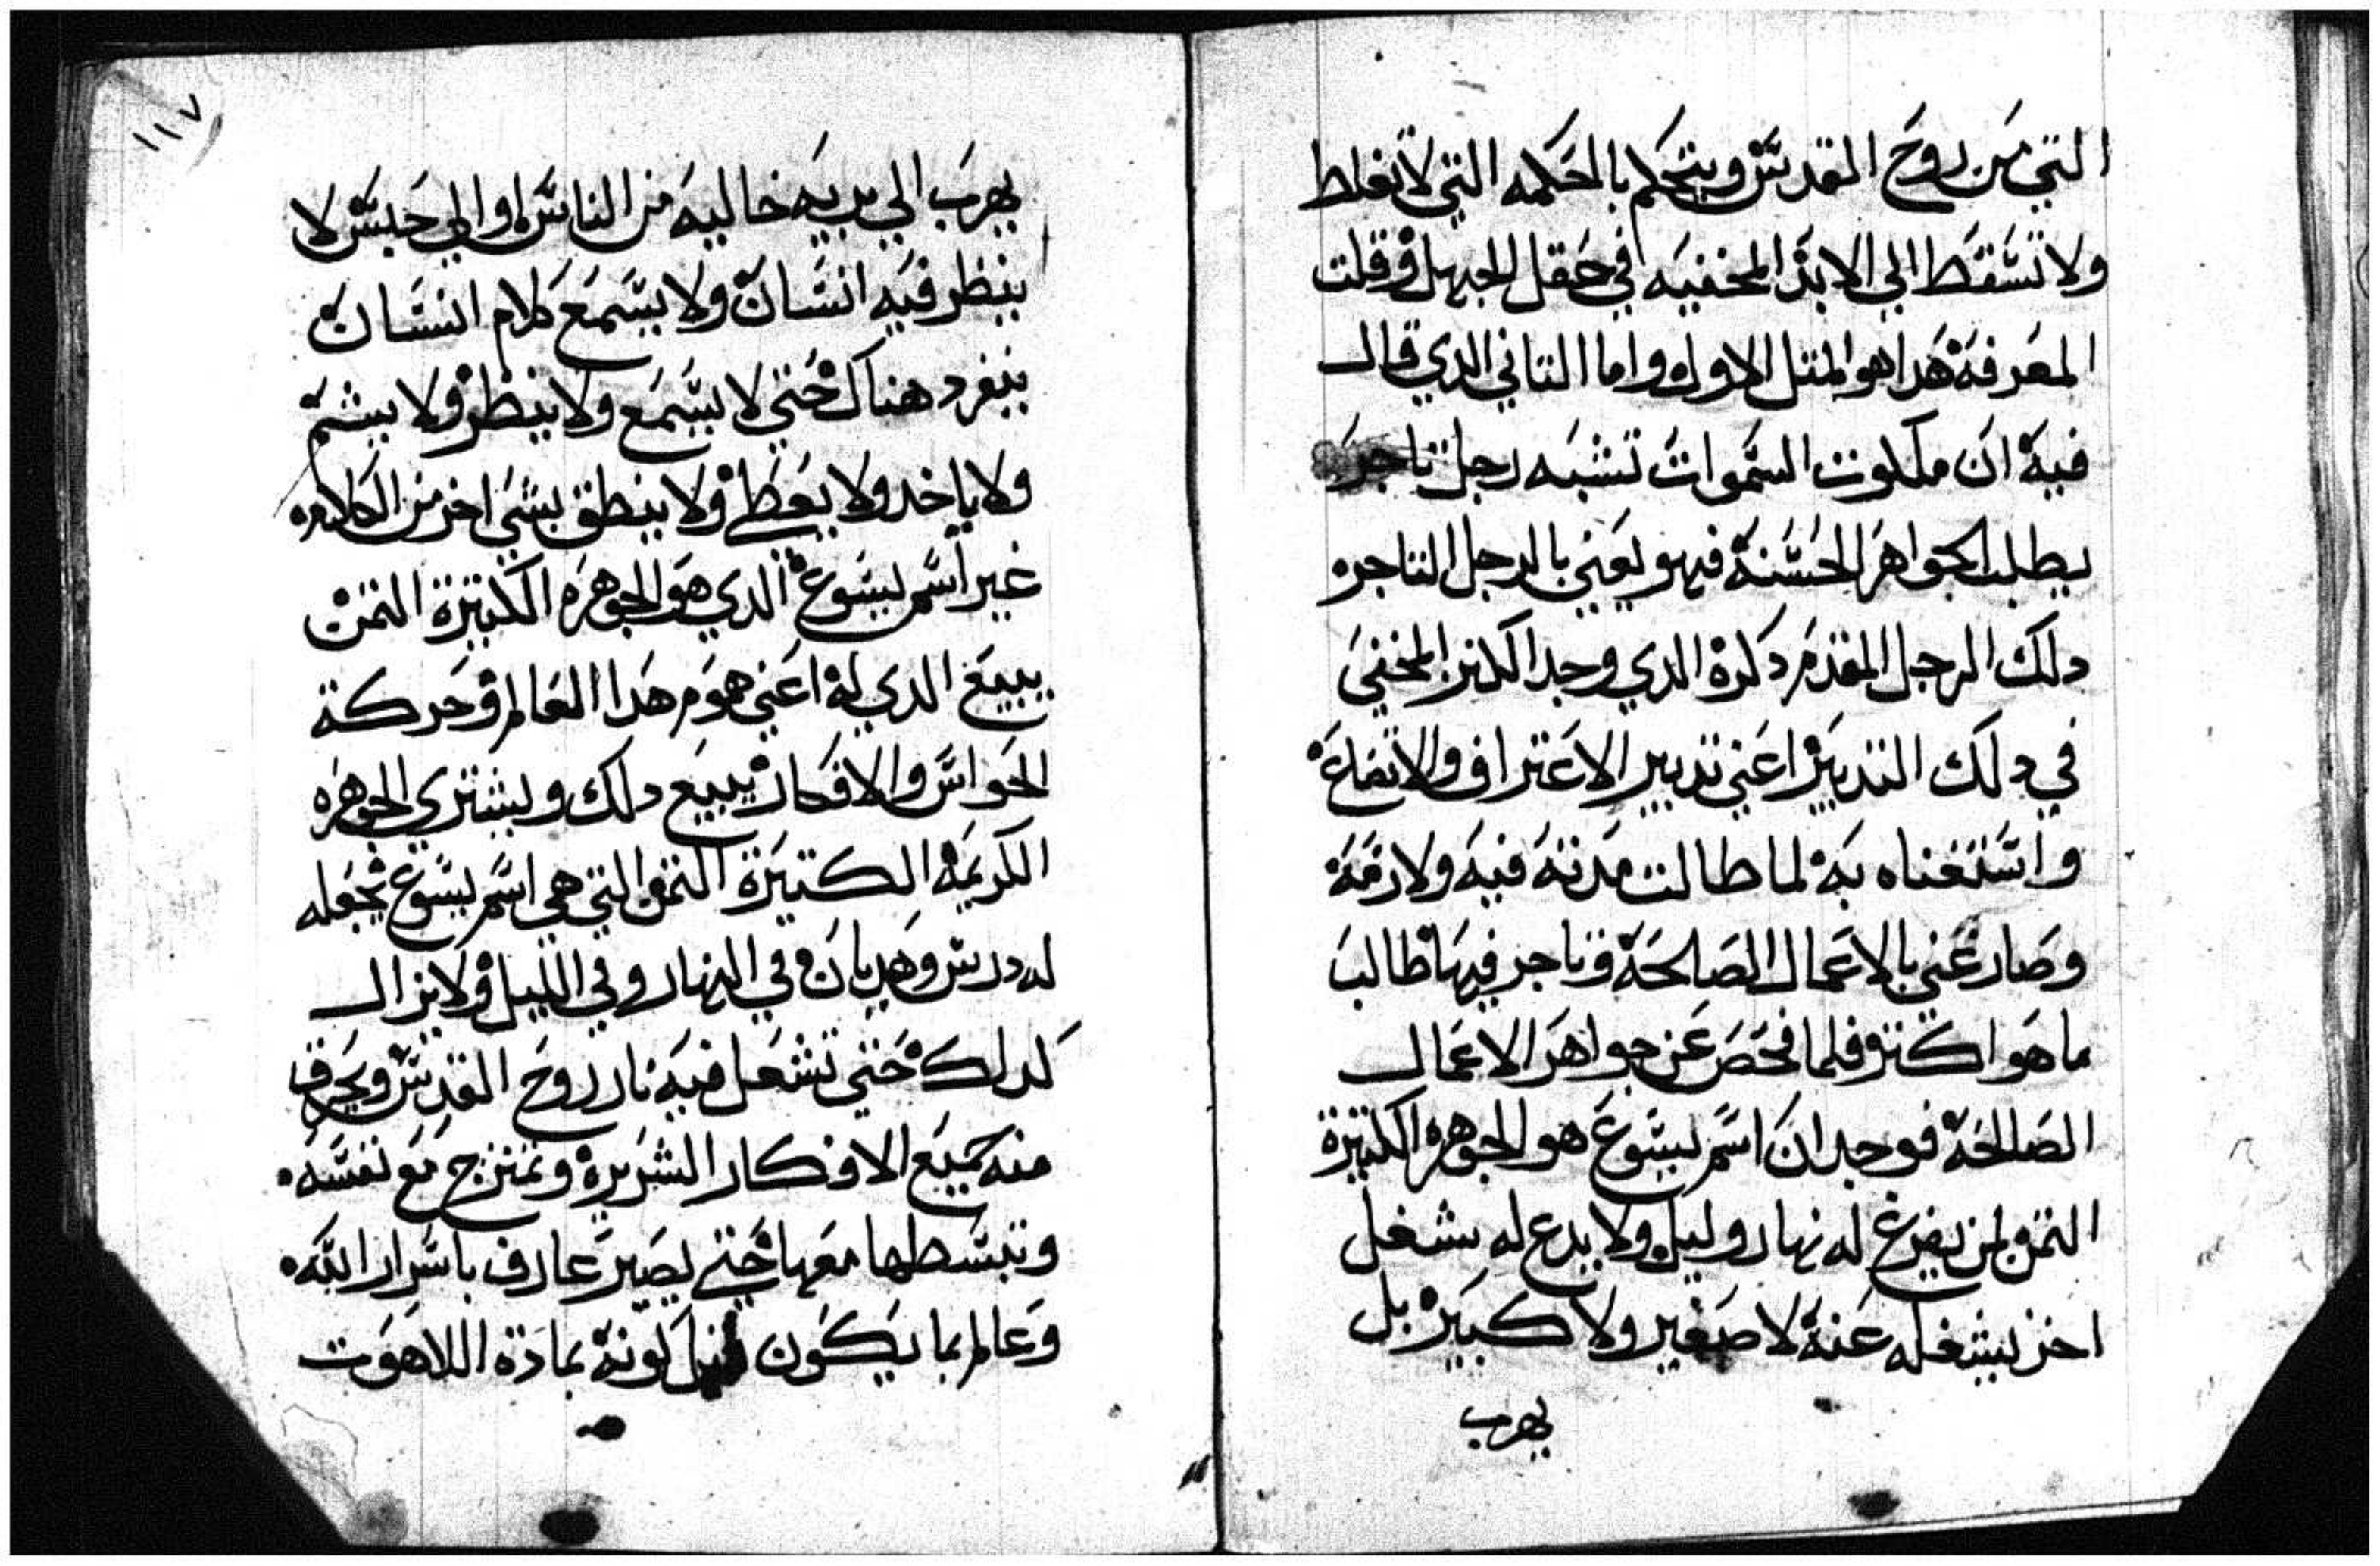 التي من روح القدس ويتحكم بالحكمه التي لا تغلط
ولا تسقط الي الابد المخفيه في حقل الجهل وقلت
المعرفة هدا هو المتل الاول واما التاني الدي قال
فيه ان ملكوت السموات تشبه رجل تاجر
يطلب الجواهر الحسنة فهو يعني بالرجل التاجر
دلك الرجل المقدم دكرة الدي وجد الكنز المخفي
في دلك التدبير اعني تدبير الاعتراف والاتضاع
واستغناه به لما طالت مدته فيه ولازمة
وصار غني بالاعمال الصالحة وتاجر فيها طالب
ما هو اكتر فلما فحص عن جواهر الاعمال
الصالحة فوجد ان اسم يسوع هو الجوهرة الكتيرة
التمن لمن يفرغ له نهار وليل ولا يدع له شغل
اخر يشغله عنة لا صغير ولا كبير بل
يهرب
١١٧
يهرب الي بريه خاليه من الناس او الي حبس لا
ينظر فيه انسان ولا يسمع كلام انسان
ينفرد هناك حتي لا يسمع ولا ينظر ولا يشم
ولا ياخد ولا يعطي ولا ينطق بشي اخر من الكلام
غير اسم يسوع الدي هو الجوهرة الكتيرة التمن
يبيع الدي له اعني هموم هدا العالم وحركة
الحواس والافكار يبيع دلك ويشتري الجوهرة
الكريمة الكتيرة التمن التي هي اسم يسوع يجعله
له درس وهديان في النهار وفي الليل ولا يزال
كدلك حتي تشعل فيه نار روح القدس ويحرق
منه جميع الافكار الشريرة وتمتزج مع نفسه
وتبسطها معها حتي يصير عارف باسرار الله
وعالم بما يكون قبل كونة بمادة اللاهوت